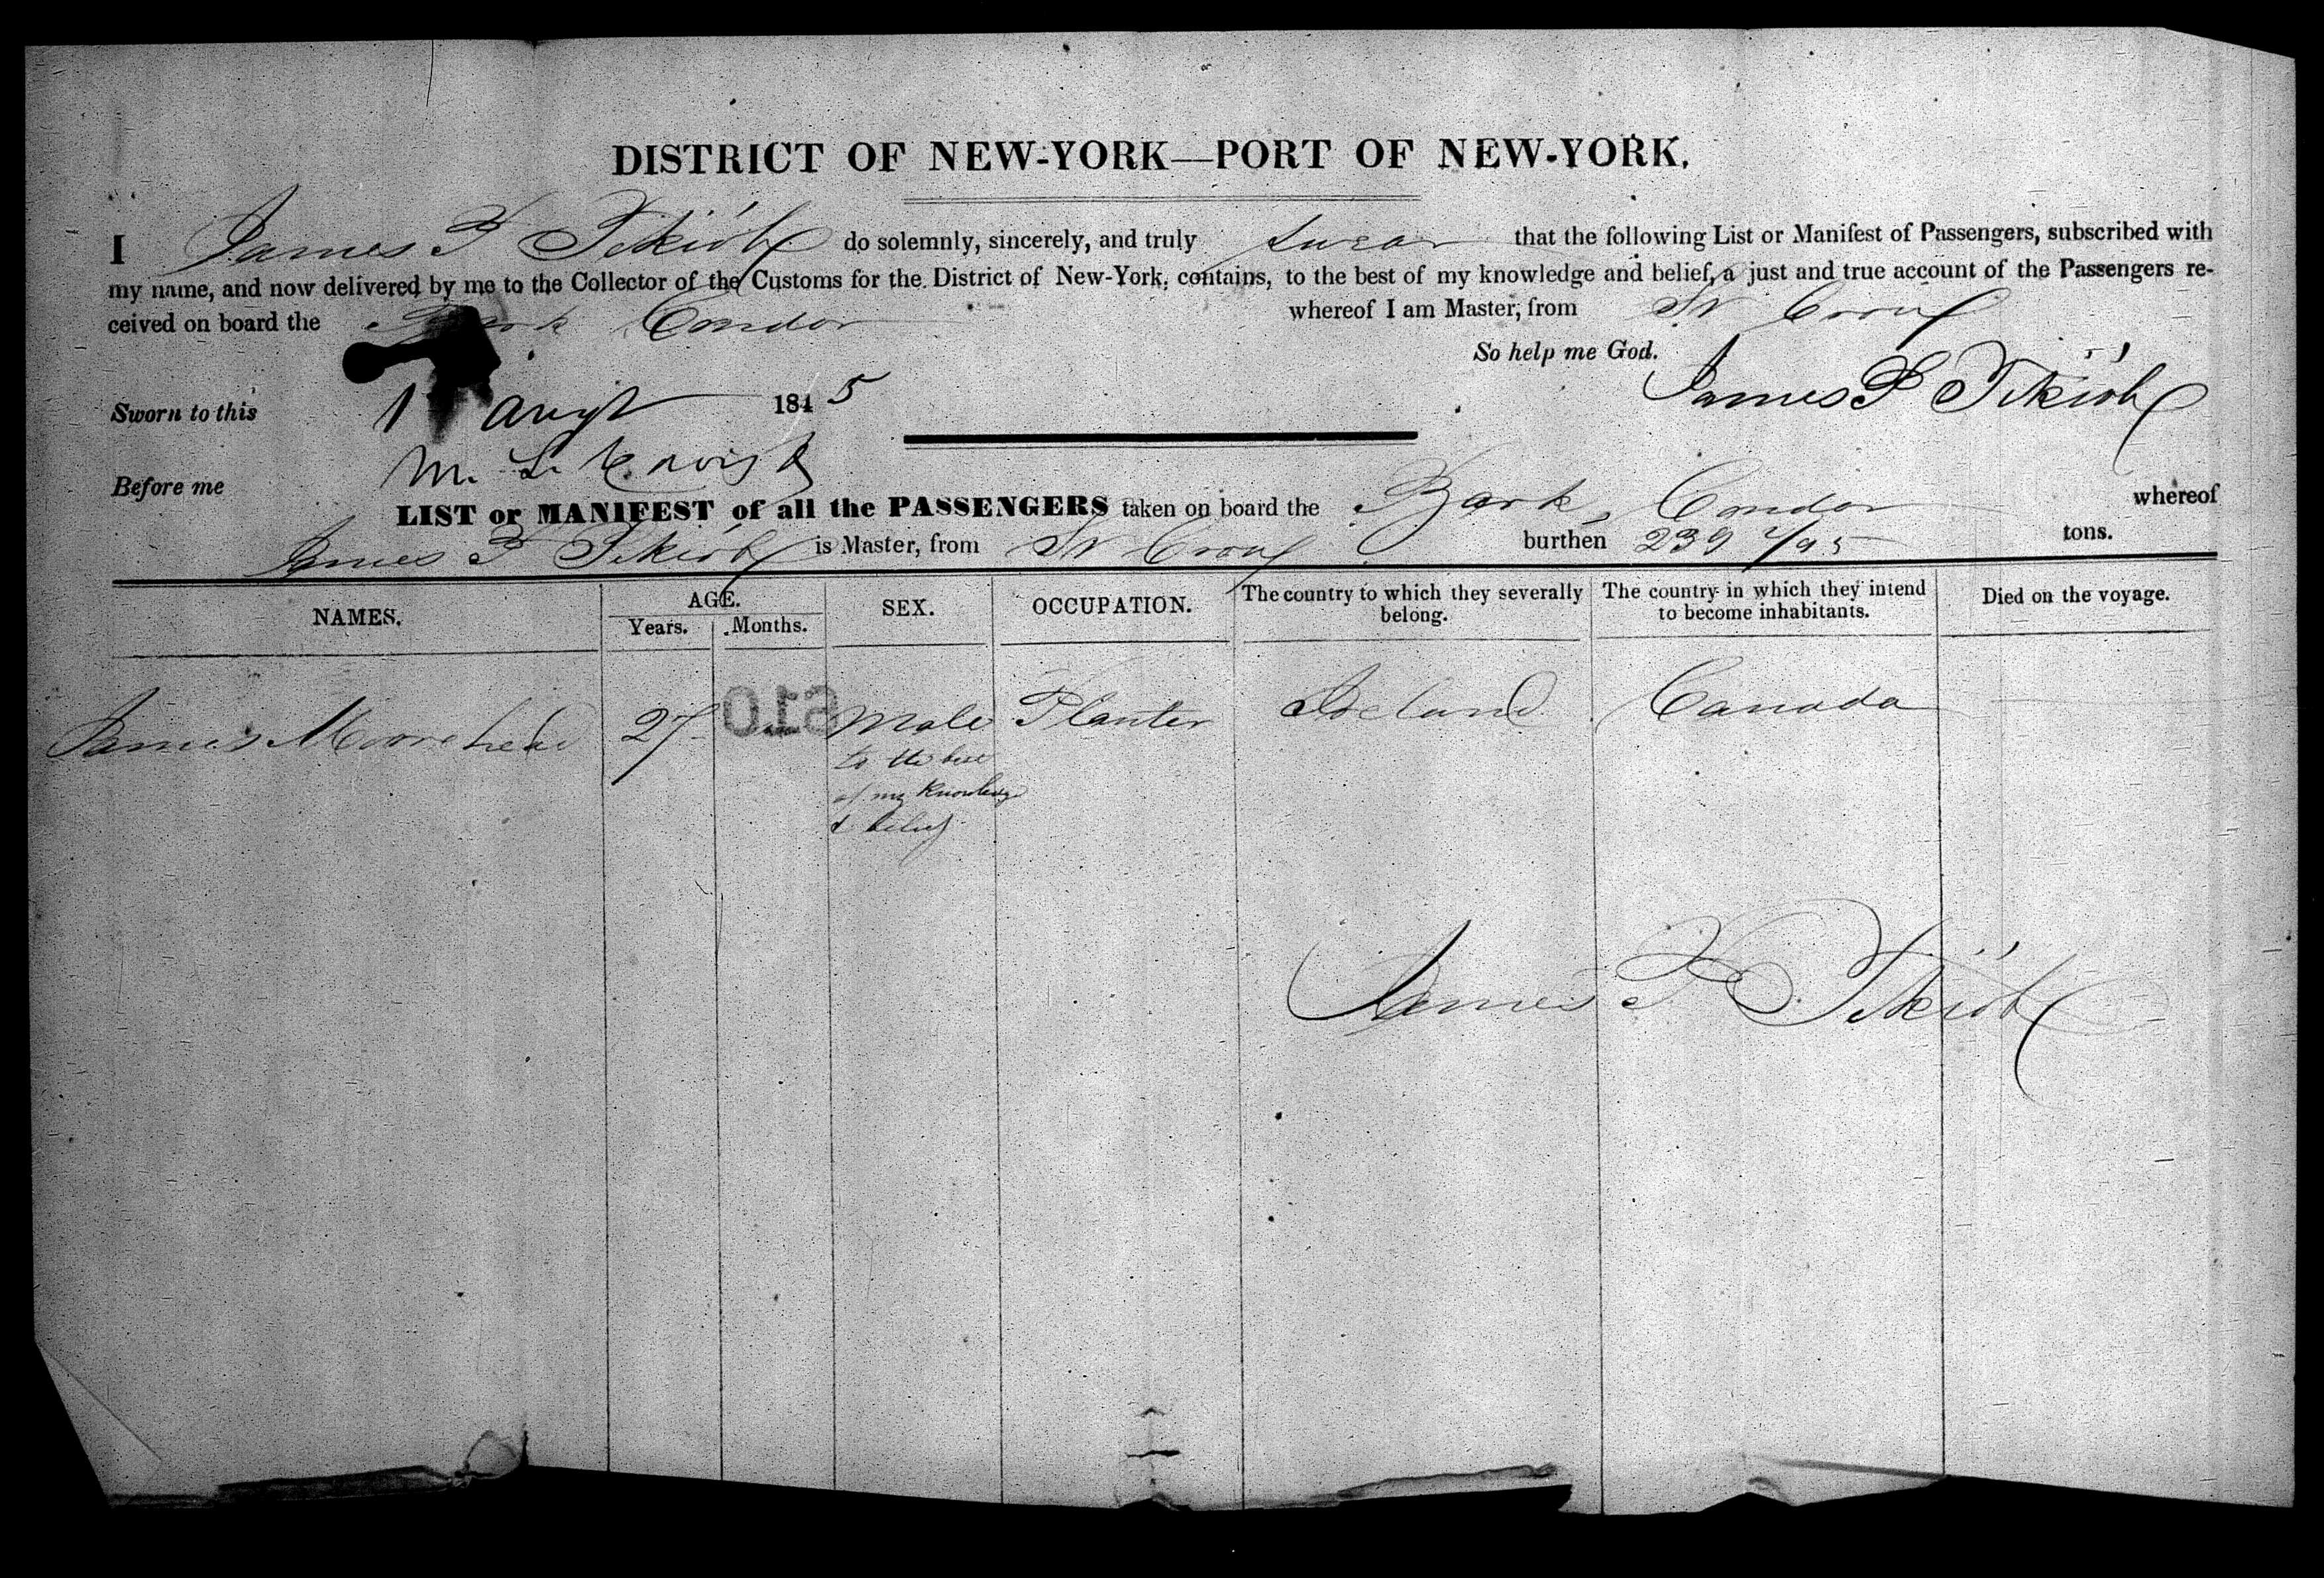 DISTRICT OF NEW-YORK—PORT OF NEW-YORK.
I James do solemnly, sincerely, and truly swear that the following List or Manifest of Passengers, subscribed with
my name, and now delivered by me to the Collector of the Customs for the District of New-York, contains, to the best of my knowledge and belief, a just and true account of the Passengers re-
ceived on board the Bark Condor whereof I am Master, from St Croix
So help me God.
James
Sworn to this 1 Augt 1845
Before me M. L.
LIST or MANIFEST of all the PASSENGERS taken on board the Bark Condor whereof
James is Master, from St Croix burthen 239 2/95 tons.
NAMES. AGE. Years. Months. SEX. OCCUPATION. The country to which they severally belong. The country in which they intend to become inhabitants. Died on the voyage.
James Moorehead 27 Male Planter Ireland Canada
to the best
of my Knowledge
& belief
James